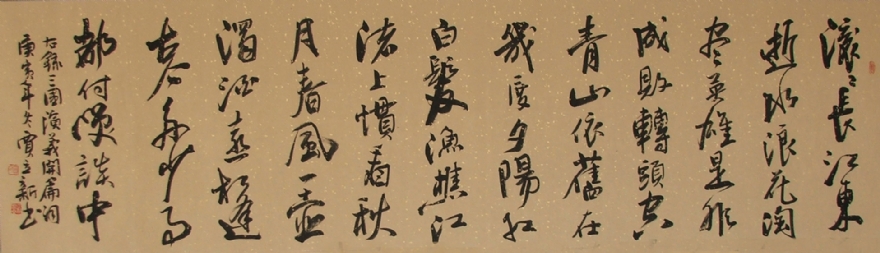 滚々長江東
逝水浪花淘
尽英雄是非
成敗轉頭空
青山依舊在
幾度夕陽紅
白髮漁樵江
渚上慣看秋
月春風一壺
濁酒喜相逢
古今多少事
都付笑談中
右錄三國演義開篇詞
庚寅年冬賈立新书